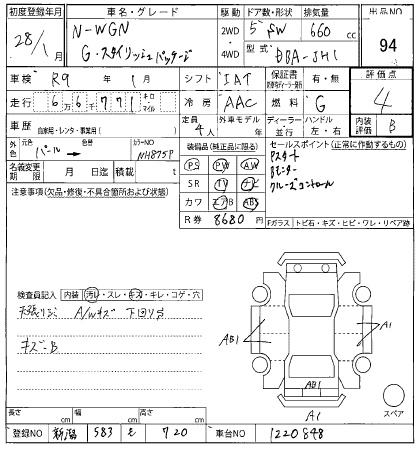 初度登録年月 車名・グレード 駆動 ドア数・形状 排気量 出品NO
28/1 N-WGN 2WD 5 SW 660 cc 94
G・スタイリッシュパッケージ 4WD 型式 DBA-JH1
車検 R9年 1月 シフト IAT 保証書 有・無 評価点
走行 66771 キロ マイル 冷房 AAC 燃料 G 4
車歴 自家用・レンタ・事業用( ) 定員 4人 外車モデル 年 ディーラー 並行 ハンドル 左・右 内装評価 B
外色 元色 パール 色替 カラーNO NH875P 装備品(純正品に限る) セールスポイント(正常に作動するもの)
名義変更期限 月 日迄 積載 t PS PW AW Pスタート
注意事項(欠品・修復・不具合箇所および状態) SR TV ナビ Bモニター
カワ エアB ABS クルーズコントロール
R券 8680円 Fガラス トビ石・キズ・ヒビ・ワレ・リペア跡
検査員記入 内装 汚レ・スレ・キズ・キレ・コゲ・穴
天張りよごれ A/Wキズ 下回りサビ
キズ-B
AB1 A1
AB1
A1 スペア
長さ cm 幅 cm 高さ cm
登録NO 新潟 583 を 720 車台NO 1220848